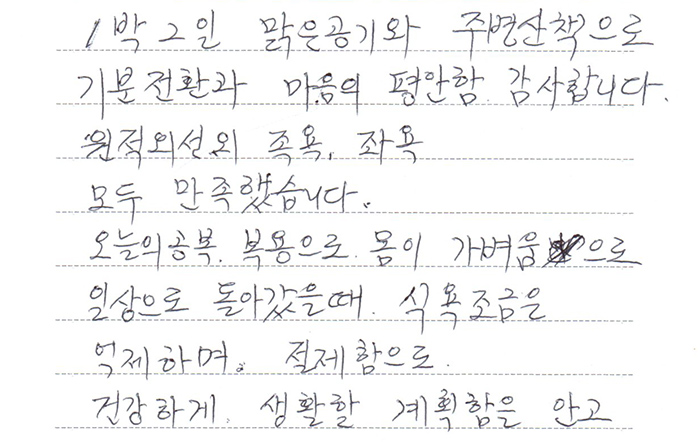 1박2일 맑은공기와 주변산책으로
기분전환과 마음의 평안함 감사합니다.
원적외선외 족욕, 좌욕
모두 만족했습니다.
오늘의공복, 복용으로 몸이 가벼움으로
일상으로 돌아갔을때, 식욕조금은
억제하며, 절제함으로
건강하게, 생활할 계획함을 안고